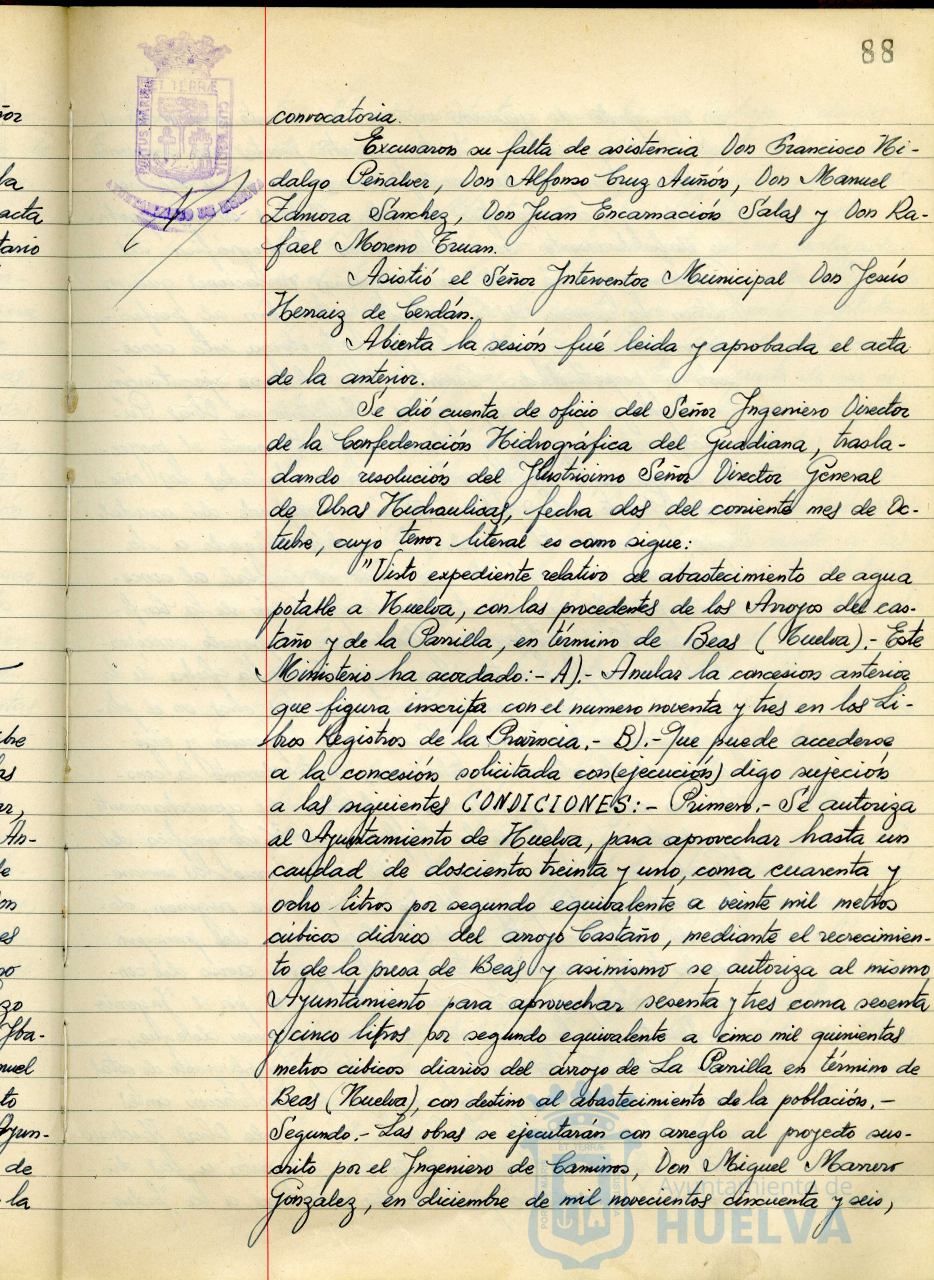 88
convocatoria.
Excusaron su falta de asistencia Don Francisco Hi-
dalgo Peñalver, Don Alfonso Cruz Auñón, Don Manuel
Zamora Sánchez, Don Juan Encarnación Salas y Don Ra-
fael Moreno Truan.
Asistió el Señor Interventor Municipal Don Jesús
Hernaiz de Cerdán.
Abierta la sesión fué leida y aprobada el acta
de la anterior.
Se dió cuenta de oficio del Señor Ingeniero Director
de la Confederación Hidrográfica del Guadiana, trasla-
dando resolución del Ilustrísimo Señor Director General
de Obras Hidraulicas, fecha dos del corriente mes de Oc-
tubre, cuyo tenor literal es como sigue:
"Visto expediente relativo al abastecimiento de agua
potable a Huelva, con las procedentes de los Arroyos del cas-
taño y de la Parrilla, en término de Beas (Huelva).- Este
Ministerio ha acordado:- A).- Anular la concesion anterior
que figura inscrita con el numero noventa y tres en los Li-
bros Registros de la Provincia.- B).- Que puede accederse
a la concesión solicitada con (ejecución) digo sujeción
a las siguientes CONDICIONES:- Primero.- Se autoriza
al Ayuntamiento de Huelva, para aprovechar hasta un
caudal de doscientos treinta y uno, coma cuarenta y
ocho litros por segundo equivalente a veinte mil metros
cúbicos diarios del arroyo Castaño, mediante el recrecimien-
to de la presa de Beas y asimismo se autoriza al mismo
Ayuntamiento para aprovechar sesenta y tres coma sesenta
y cinco litros por segundo equivalente a cinco mil quinientas
metros cúbicos diarios del arroyo de La Parrilla en término de
Beas (Huelva), con destino al abastecimiento de la población.-
Segundo.- Las obras se ejecutarán con arreglo al proyecto sus-
crito por el Ingeniero de Caminos, Don Miguel Marrero
González, en diciembre de mil novecientos cincuenta y seis,
Ayuntamiento de
HUELVA